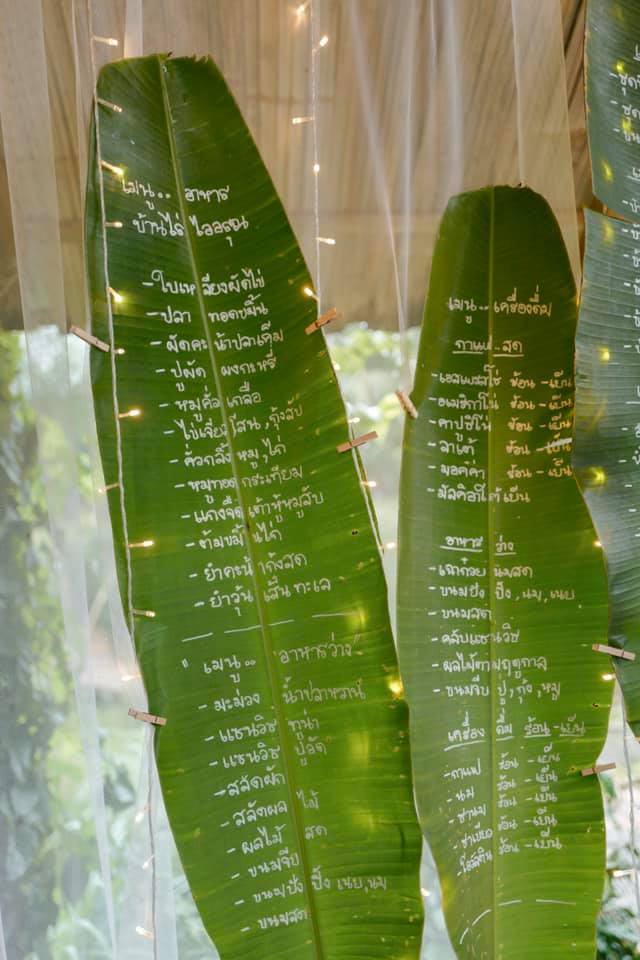 เมนู.. อาหาร
บ้านไร่ ไออรุณ
-ใบเหลียงผัดไข่
-ปลา ทอดขมิ้น
-ผัดคะน้าปลาเค็ม
-ปูผัด ผงกะหรี่
-หมูคั่วเกลือ
-ไข่เจียวโสน, กุ้งสับ
-คั่วกลิ้ง หมู, ไก่
-หมูทอดกระเทียม
-แกงจืดเต้าหู้หมูสับ
-ต้มขมิ้นไก่
-ยำคะน้ากุ้งสด
-ยำวุ้นเส้นทะเล
" เมนู.. อาหารว่าง"
-มะม่วง น้ำปลาหวาน
-แซนวิช ทูน่า
-แซนวิช ปูอัด
-สลัดผัก
-สลัดผลไม้
-ผลไม้ สด
-ขนมจีบ
-ขนมปัง ปิ้ง เนย,นม
-ขนมสด
เมนู..เครื่องดื่ม
กาแฟ..สด
-เอสเพรสโซ่ ร้อน -เย็น
-อเมริกาโน่ ร้อน -เย็น
-คาปูชิโน่ ร้อน -เย็น
-ลาเต้ ร้อน -เย็น
-มอคค่า ร้อน -เย็น
-มัคคิอาโต้เย็น
อาหาร ว่าง
-เฉาก๋วย นมสด
-ขนมปัง ปิ้ง,นม,เนย
-ขนมสด
-คลับแซนวิช
-ผลไม้ตามฤดูกาล
-ขนมจีบ ปู,กุ้ง,หมู
เครื่อง ดื่ม ร้อน-เย็น
-กาแฟ ร้อน -เย็น
-นม ร้อน -เย็น
-ชานม ร้อน -เย็น
-ชาเขียว ร้อน -เย็น
-โอวัลติน ร้อน -เย็น